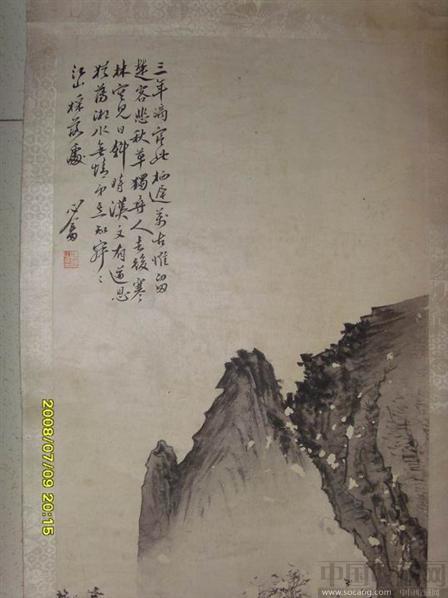 三年謫宦此栖遲萬古惟留
楚客悲秋草獨尋人去後寒
林空見日斜時漢文有道恩
猶薄湘水無情弔豈知寂〻
江山搖落處 心畬
2008/07/09 20:15
www.socang.com